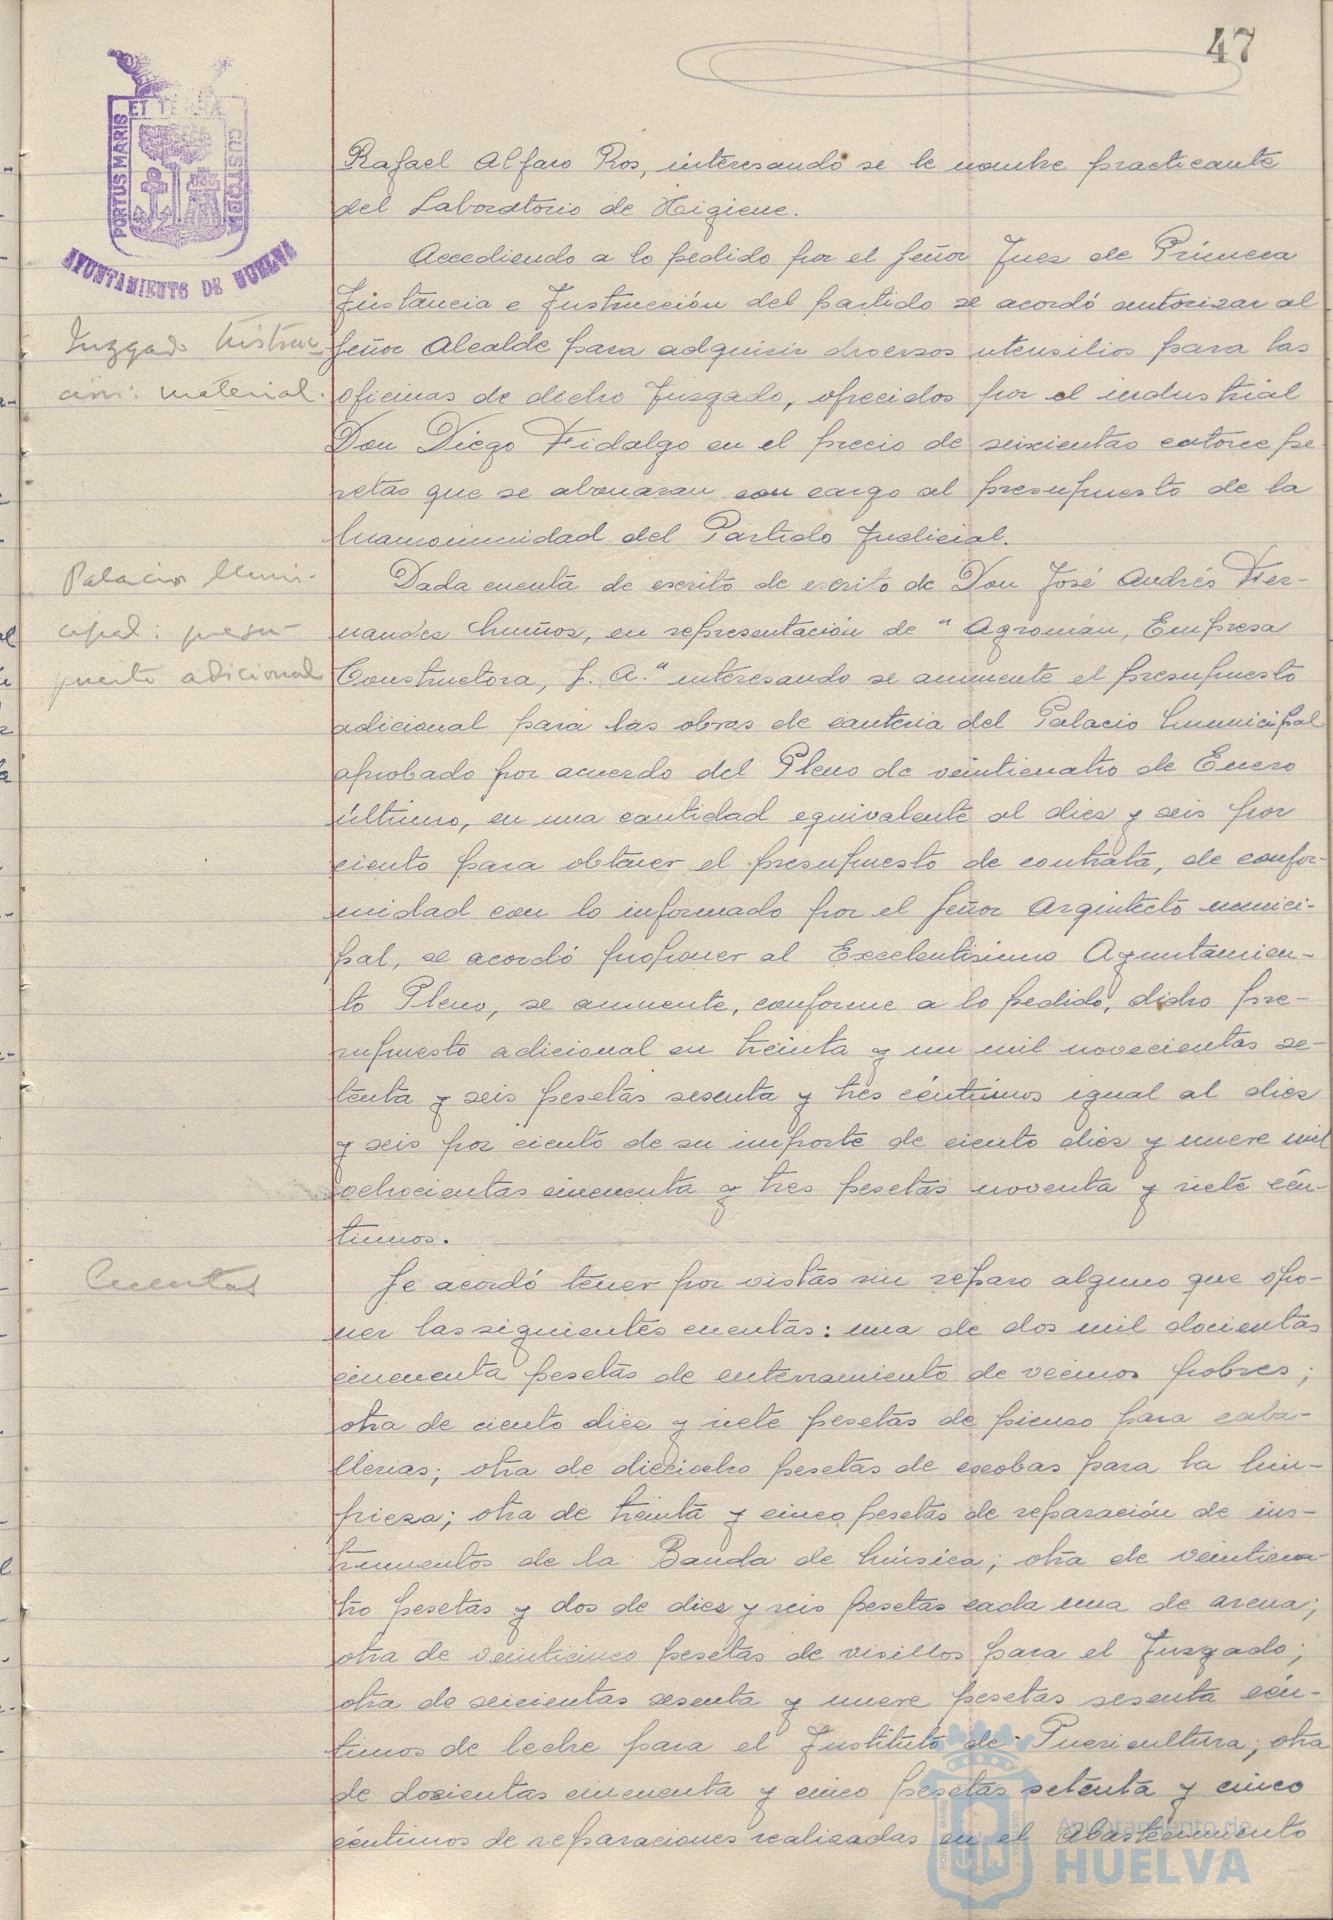 47
PORTUS MARIS ET TERRAE CUSTODIA
AYUNTAMIENTO DE HUELVA
Rafael Alfaro Ros, interesando se le nombre practicante
del Laboratorio de Higiene.
Accediendo a lo pedido por el Señor Juez de Primera
Instancia e Instrucción del partido se acordó autorizar al
Juzgado Instruc
Señor Alcalde para adquirir diversos utensilios para las
ción: material.
oficinas de dicho Juzgado, ofrecidos por el industrial
Don Diego Fidalgo en el precio de seiscientas catorce pe-
setas que se abonaran con cargo al presupuesto de la
Mancomunidad del Partido Judicial.
Palacio Muni-
Dada cuenta de escrito de escrito de Don José Andrés Fer-
cipal: presu-
nandez Muños, en representación de "Agroman, Empresa
puesto adicional
Constructora, S. A." interesando se aumente el presupuesto
adicional para las obras de canteria del Palacio Municipal
aprobado por acuerdo del Pleno de veinticuatro de Enero
último, en una cantidad equivalente al diez y seis por
ciento para obtener el presupuesto de contrata, de confor-
midad con lo informado por el Señor Arquitecto munici-
pal, se acordó proponer al Excelentisimo Ayuntamien-
to Pleno, se aumente, conforme a lo pedido, dicho pre-
supuesto adicional en treinta y un mil novecientas se-
tenta y seis pesetas sesenta y tres céntimos igual al diez
y seis por ciento de su importe de ciento diez y nueve mil
ochocientas cincuenta y tres pesetas noventa y siete cén-
timos.
Cuentas
Se acordó tener por vistas sin reparo alguno que opo-
ner las siguientes cuentas: una de dos mil docientas
cincuenta pesetas de enterramiento de vecinos pobres;
otra de ciento diez y siete pesetas de pienso para caba-
llerias; otra de dieciocho pesetas de escobas para la lim-
pieza; otra de treinta y cinco pesetas de reparación de ins-
trumentos de la Banda de Música; otra de veinticua-
tro pesetas y dos de diez y seis pesetas cada una de arena;
otra de veinticinco pesetas de visillos para el Juzgado;
otra de seicientas sesenta y nueve pesetas sesenta cén-
timos de leche para el Instituto de Puericultura; otra
de docientas cincuenta y cinco pesetas setenta y cinco
céntimos de reparaciones realizadas en el Abastecimiento
Ayuntamiento de
HUELVA